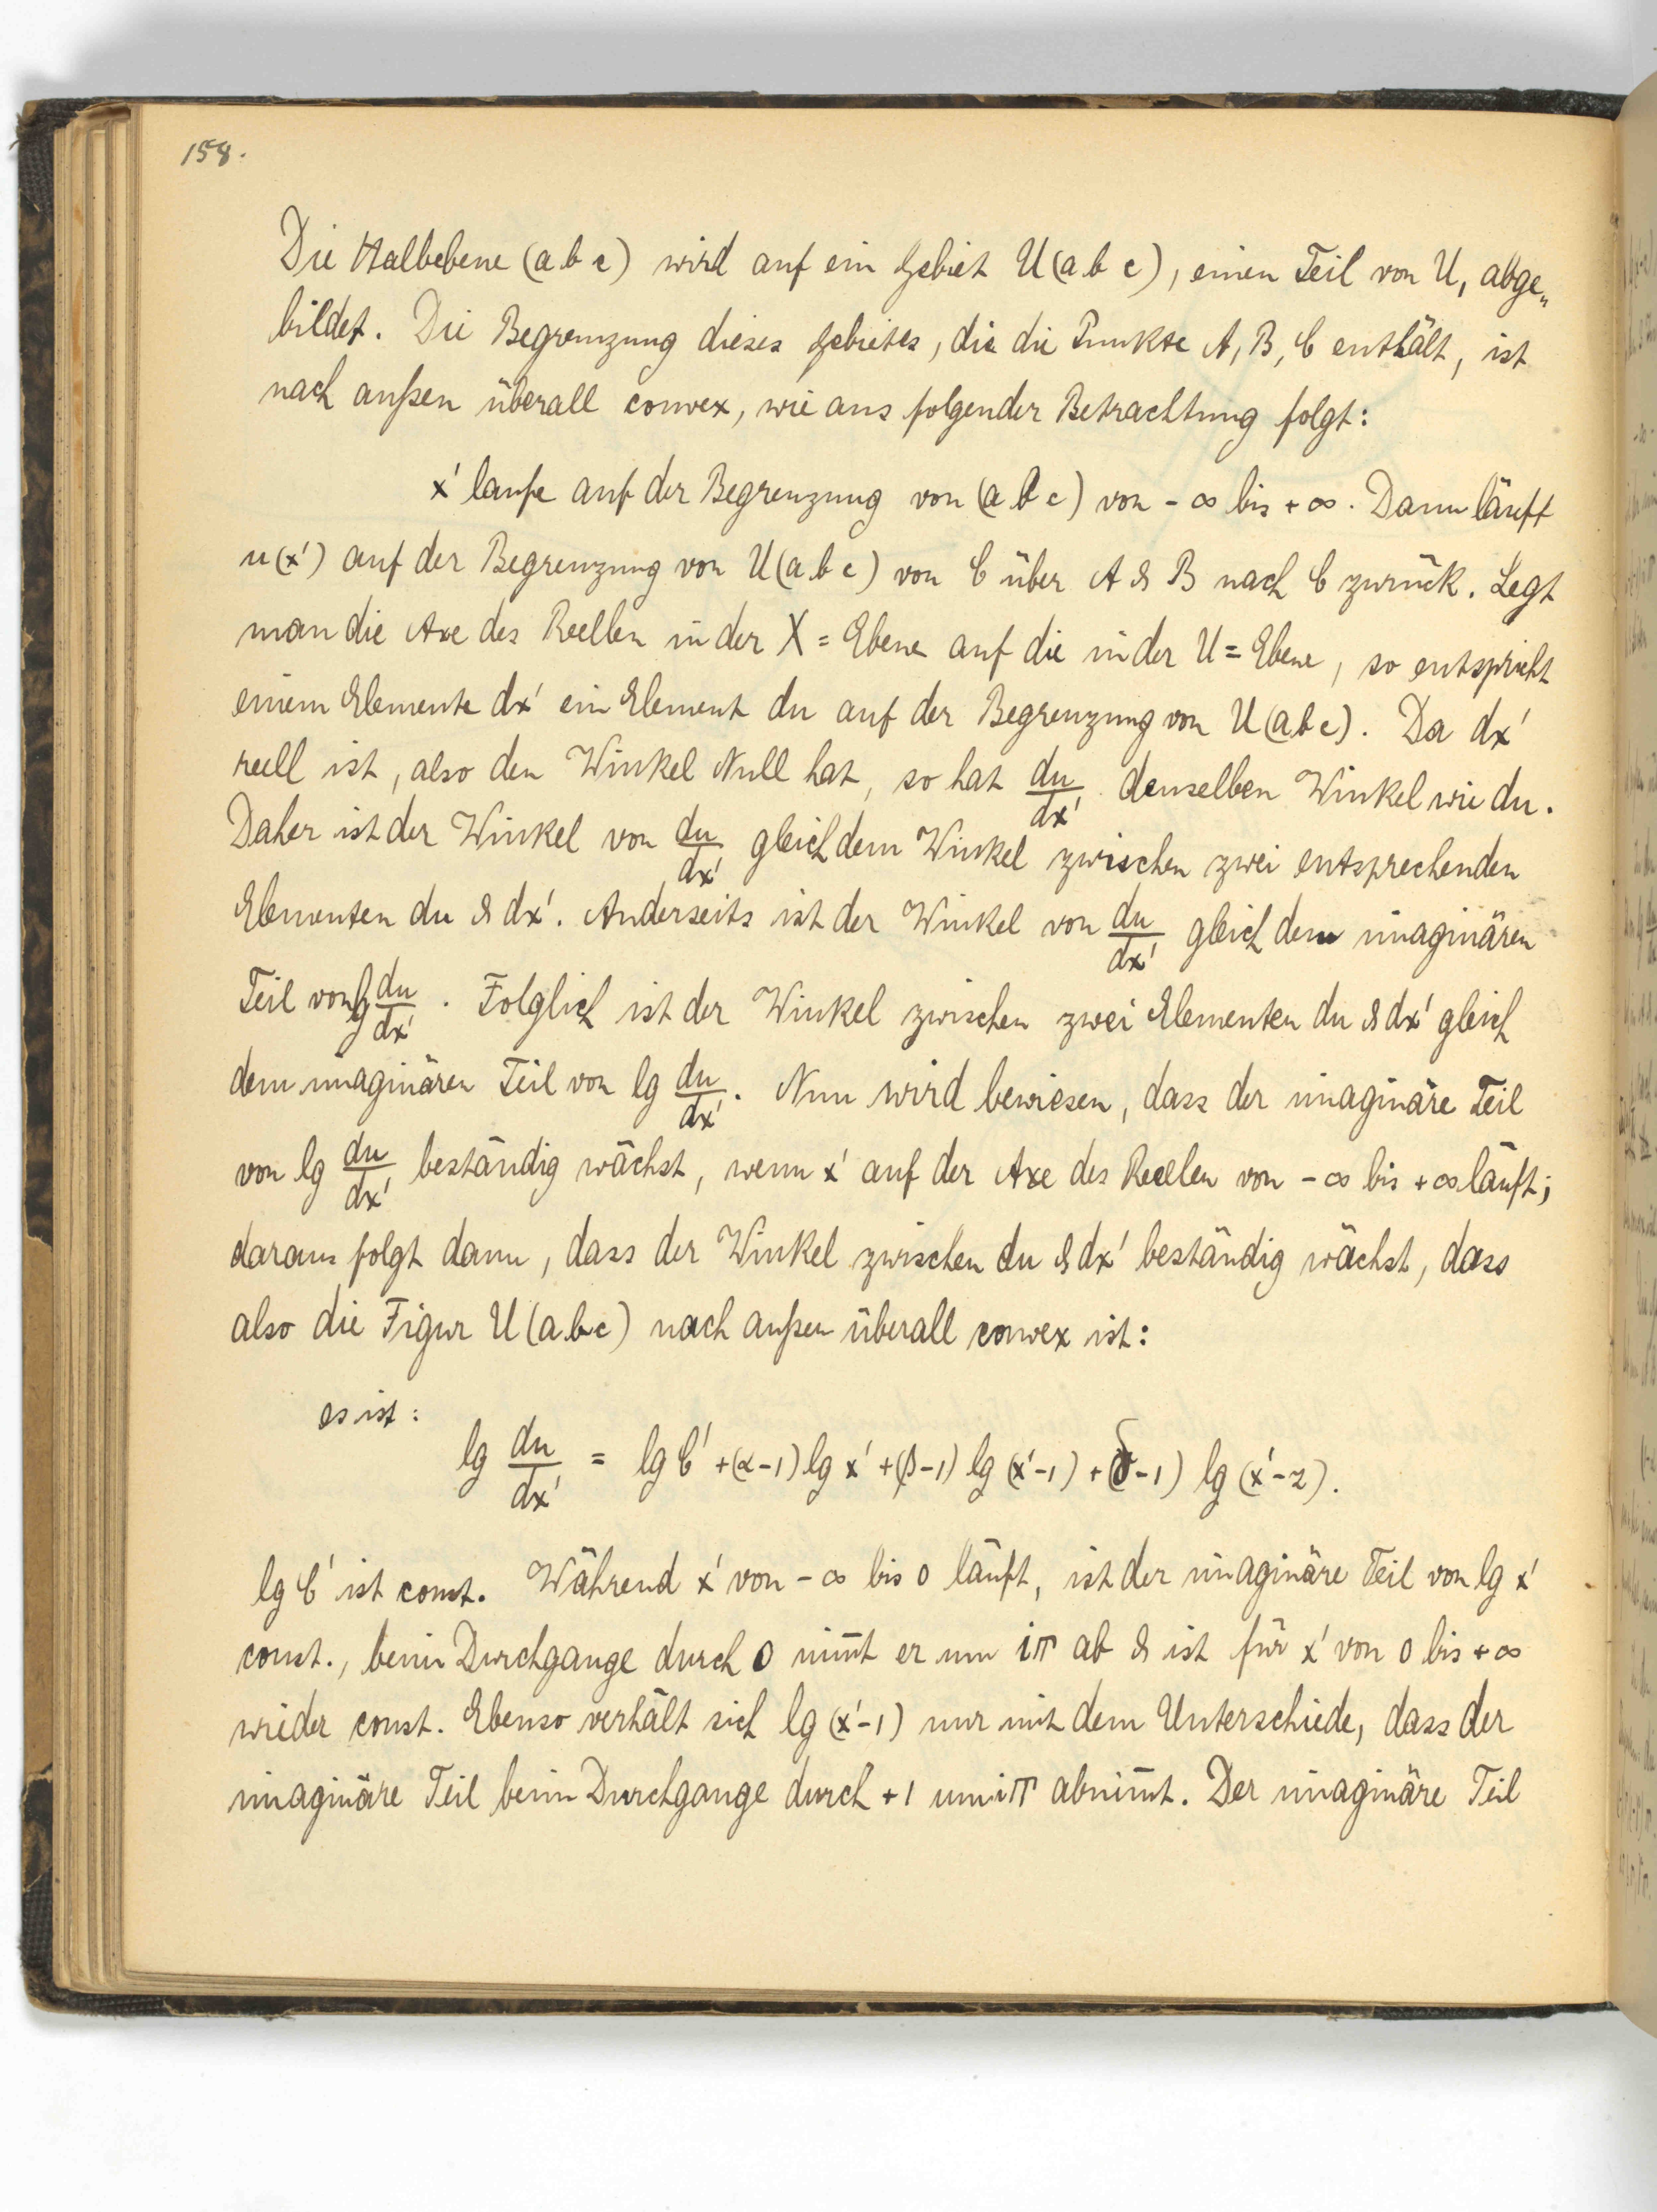 158.
Die Halbebene (a b c) wird auf ein Gebiet U(a b c), einen Teil von U, abge„
bildet. Die Begrenzung dieses Gebietes, die die Punkte A, B, C enthält, ist
nach außen überall convex, wie aus folgender Betrachtung folgt:
x' laufe auf der Begrenzung von (a b c) von -∞ bis +∞. Dann läuft
u(x') auf der Begrenzung von U(a b c) von C über A & B nach C zurück. Legt
man die Axe des Reellen in der X = Ebene auf die in der U = Ebene, so entspricht
einem Elemente dx' ein Element du auf der Begrenzung von U(a b c). Da dx'
reell ist, also den Winkel Null hat, so hat du/dx' denselben Winkel wie du.
Daher ist der Winkel von du/dx' gleich dem Winkel zwischen zwei entsprechenden
Elementen du & dx'. Anderseits ist der Winkel von du/dx' gleich dem imaginären
Teil von lg du/dx'. Folglich ist der Winkel zwischen zwei Elementen du & dx' gleich
dem imaginären Teil von lg du/dx'. Nun wird bewiesen, dass der imaginäre Teil
von lg du/dx' beständig wächst, wenn x' auf der Axe des Reellen von -∞ bis +∞ läuft;
daraus folgt dann, dass der Winkel zwischen du & dx' beständig wächst, dass
also die Figur U(a b c) nach außen überall convex ist:
es ist:
lg du/dx' = lg C' + (α-1) lg x' + (β-1) lg (x'-1) + (δ-1) lg (x'-2).
lg C' ist const. Während x' von -∞ bis 0 läuft, ist der imaginäre Teil von lg x'
const., beim Durchgange durch 0 nim̄t er um iπ ab & ist für x' von 0 bis +∞
wieder const. Ebenso verhält sich lg (x'-1) nur mit dem Unterschiede, dass der
imaginäre Teil beim Durchgange durch +1 um iπ abnim̄t. Der imaginäre Teil